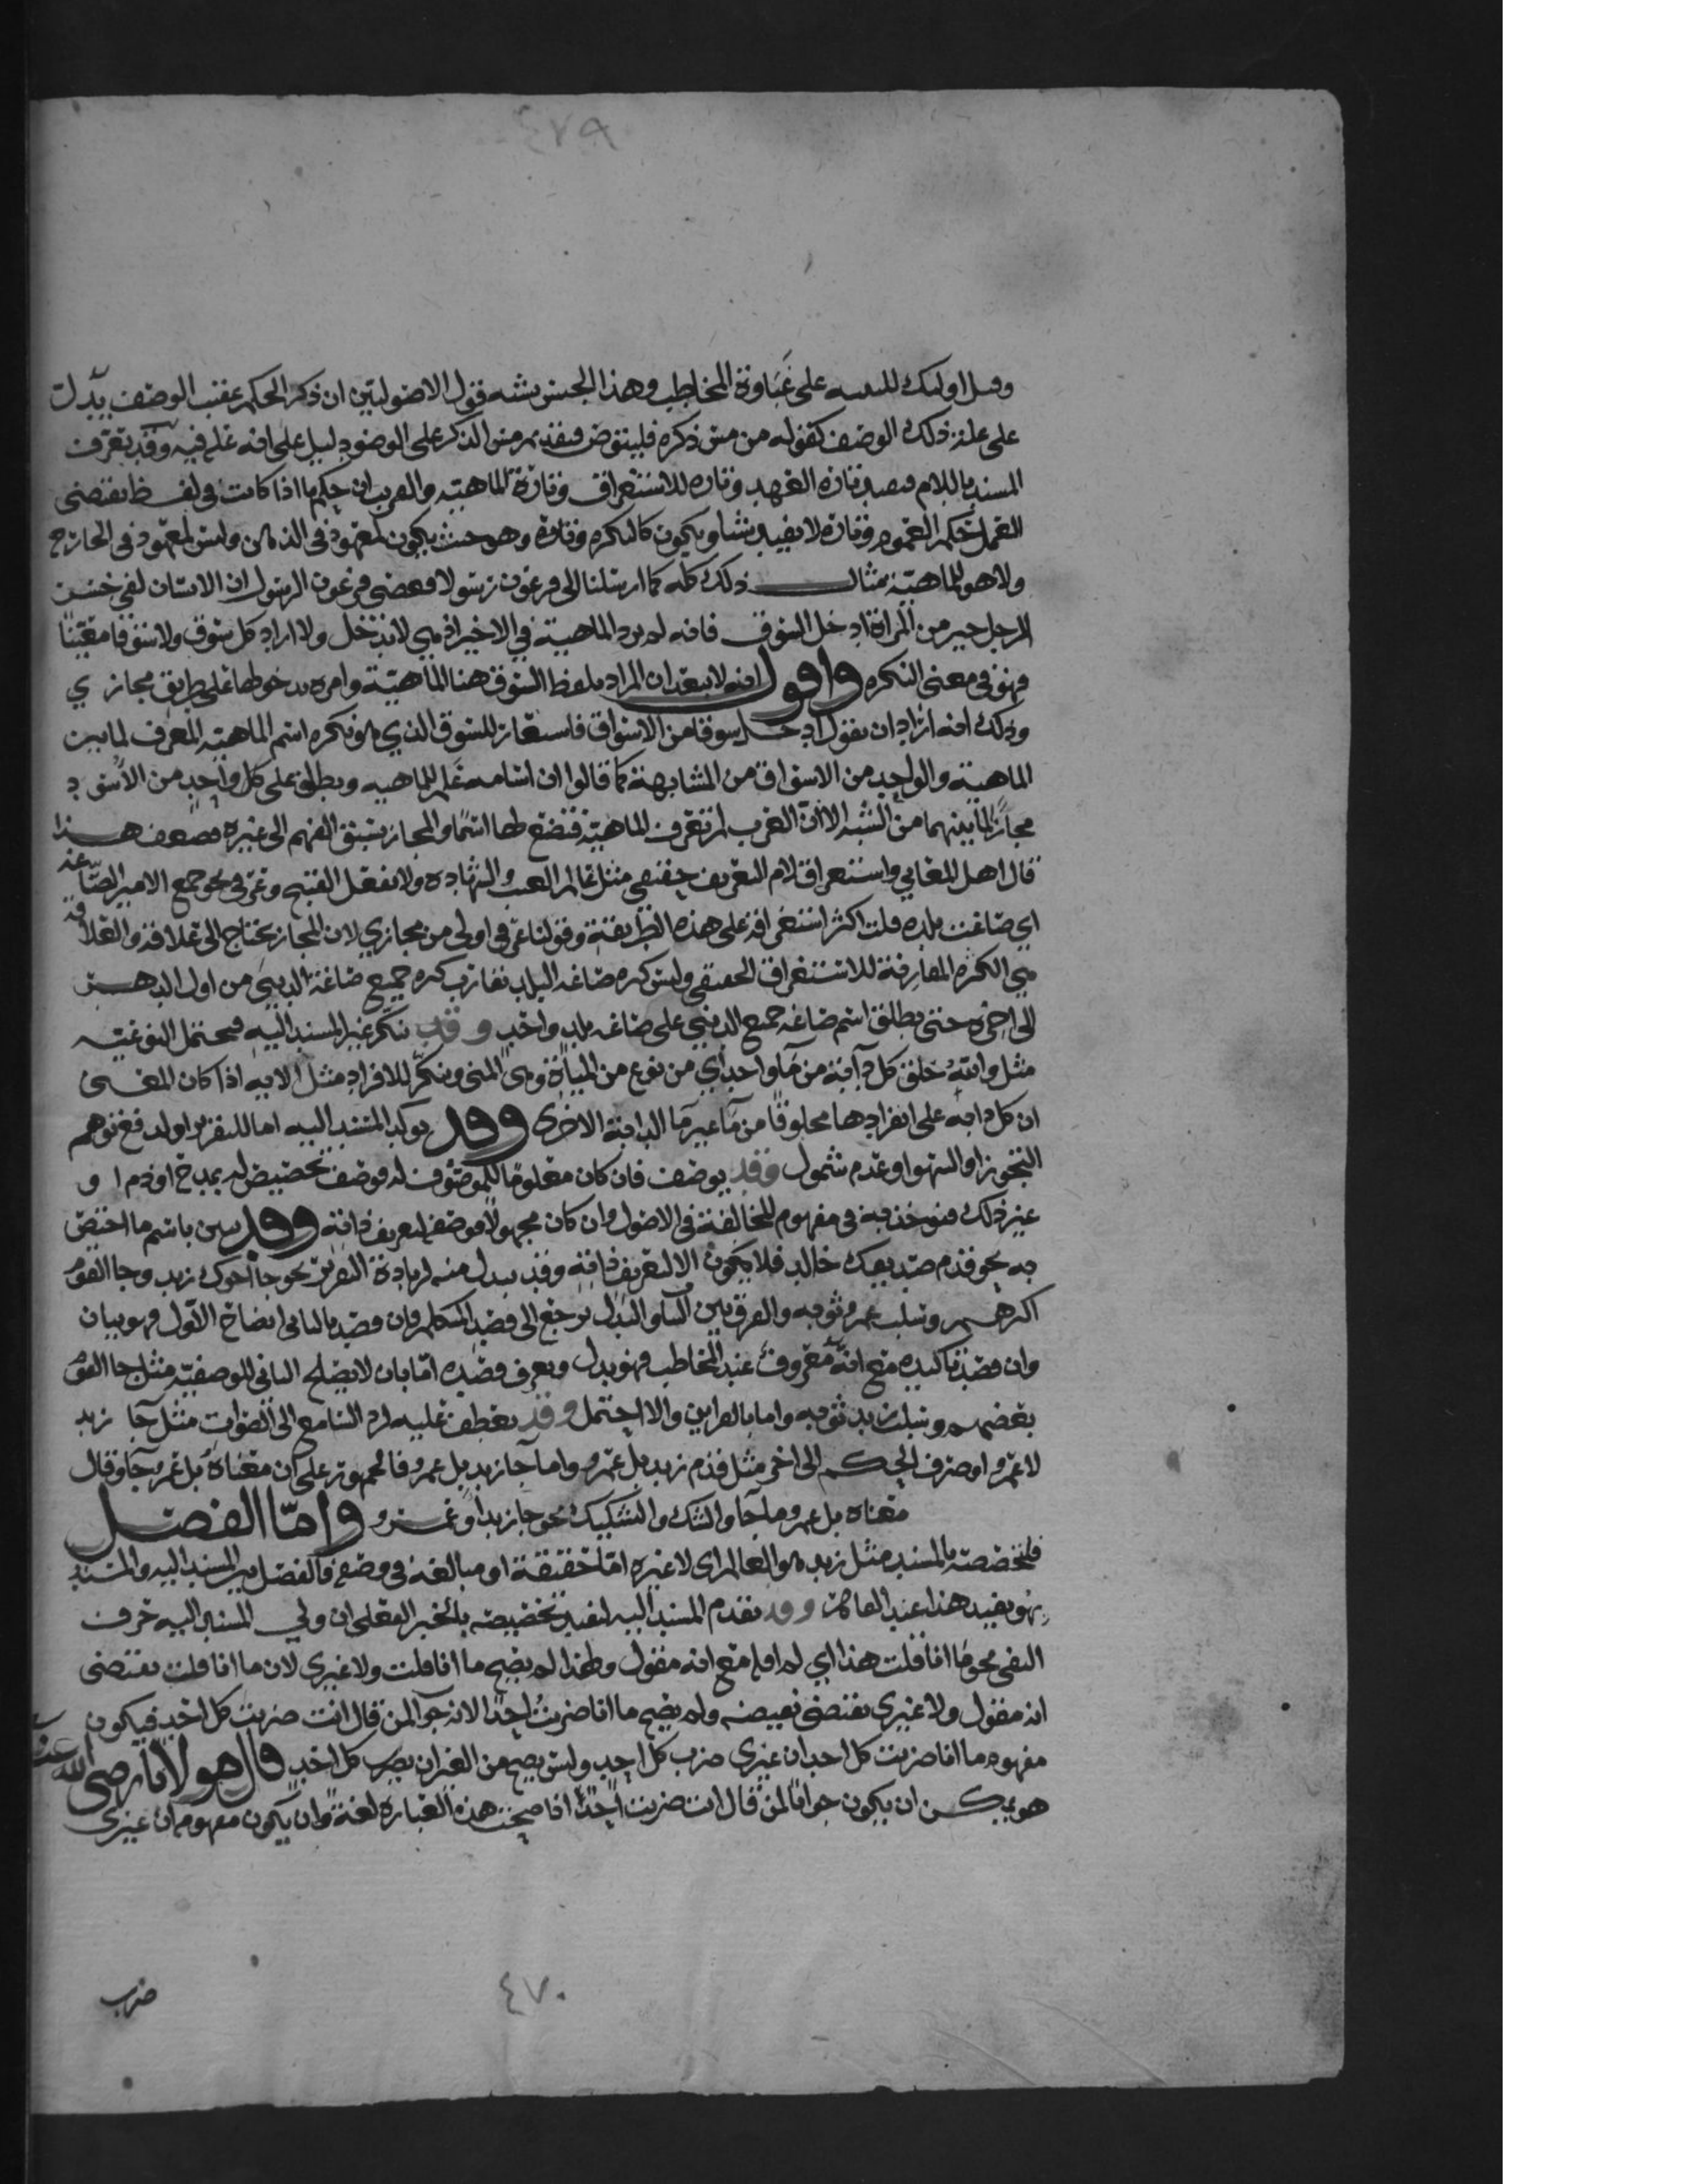 ٤٧٩
وقيل اولئك للتنبيه على غباوة المخاطب وهذا الجنس يشبه قول الاصوليين ان ذكر الحكم عقيب الوصف يدل
على علية ذلك الوصف كقوله من مس ذكره فليتوضا فتقديم مس الذكر على الوضو دليل على انه علة فيه وقد يعرف
المسند باللام فيفيد تارة العهد وتاره للاستغراق وتارة للماهية والفرب ان حكمها اذا كانت في لفظ يقتضي
العمل حكم العموم وتارة لا يفيد شيا ويكون كالنكره وتارة وهو حيث يكون لمعهود في الذهن وليس لمعهود في الخارج
ولا هو للماهية مثال ذلك كله كما ارسلنا الى فرعون رسولا فعصى فرعون الرسول ان الانسان لفي خسر
الرجل خير من المراة ادخل السوق فانه لم يرد الماهية في الاخير اذ هي لا تدخل ولا اراد كل سوق ولا سوقا معينا
فهو في معنى النكره واقول انه لا يبعد ان المراد بلفظ السوق هنا الماهية وامره بدخولها على طريق مجازي
وذلك انه اراد ان يقول ادخل سوقا من الاسواق فاستعار للسوق الذي هو نكره اسم الماهية المعرف لما بين
الماهية والواحد من الاسواق من المشابهة كما قالوا ان اسامه علم للماهيه ويطلق على كل واحد من الاسود
مجازا لما بينهما من الشبه الا ان العرب لم تعرف الماهية فتضع لها اسما والمجاز يسبق الفهم الى غيره فضعف هذا
قال اهل المعاني واستغراق لام التعريف حقيقي مثل عالم الغيب والشهادة ولا تفعل القبيح وعرفي نحو جمع الامير الصاغه
اي صاغت بلده قلت اكثر استغراقه على هذه الطريقة وقولنا عرفي اولى من مجازي لان المجاز يحتاج الى علاقه والعلاقه
هي الكثرة المقارنة للاستغراق الحقيقي وليس كثره صاغه البلد تقارب كثره جميع صاغة الدنيى من اول الدهر
الى اخره حتى يطلق اسم صاغه جميع الدنيى على صاغه بلد واحد وقد ينكر غير المسند اليه فيحتمل النوعيه
مثل والله خلق كل دابة من ما واحد اي من نوع من المياة وهي المنى وينكر للافراد مثل الايه اذا كان المعنى
ان كل دابه على انفرادها مخلوقا من ما غير ما الدابة الاخرى وقد يوكد المسند اليه اما للتقرير او لدفع توهم
التجوز او السهو او عدم شمول وقد يوصف فان كان معلوما للموصوف له فوصفه تخصيص له بمدح او ذم او
غير ذلك فيوخذ به في مفهوم المخالفة في الاصول وان كان مجهولا فوصفه لتعريف ذاته وقد يبين باسم ما اختص
به نحو قدم صديقك خالد فلا يكون الا لتعريف ذاته وقد يبدل منه لزيادة التقرير نحو جا اخوك زيد وجا القوم
اكثرهم وسلب عمرو ثوبه والفرق بين البيان والبدل يرجع الى قصد المتكلم فان قصد بالثاني ايضاح الاول فهو بيان
وان قصد تاكيده مع انه معروف عند المخاطب فهو بدل ويعرف قصده اما بان لا يصلح الثاني للوصفية مثل جا القوم
بعضهم وسلب زيد ثوبه واما بالقراين والا احتمل وقد يعطف عليه لرد السامع الى الصواب مثل جا زيد
لا عمرو او صرف الحكم الى اخر مثل قدم زيد بل عمرو واما ما جا زيد بل عمرو فالجمهور على ان معناه بل عمرو جا وقال
معناه بل عمرو ما جا والشك والتشكيك نحو جا زيد او عمرو واما الفصل
فلتخصيصه بالمسند مثل زيد هو العالم اى لا غيره اما حقيقة او مبالغه في وصفه فالفصل بين المسند اليه والمسند
بهو يفيد هذا عند وقد يقدم المسند اليه لتفيد تخصيصه بالخبر الفعلى ان ولي المسند اليه حرف
النفي نحو ما انا قلت هذا اي لم اقله مع انه مقول ولهذا لم يصح ما انا قلت ولا غيرى لان ما انا قلت يقتضى
انه مقول ولا غيرى يقتضى نقيضه ولم يصح ما انا ضربت احدا لانه جوابا لمن قال انت ضربت كل احد فيكون
مفهومه ما انا ضربت كل احد ان غيرى ضرب كل احد وليس يصح من الغير ان يضرب كل احد قال مولانا رضى الله عنه
هو يمكن ان يكون جوابا لمن قال انت ضربت احدا اذا صحت هذه العباره لغة وان يكون مفهومه ان غيرى
ضرب
٤٧٠